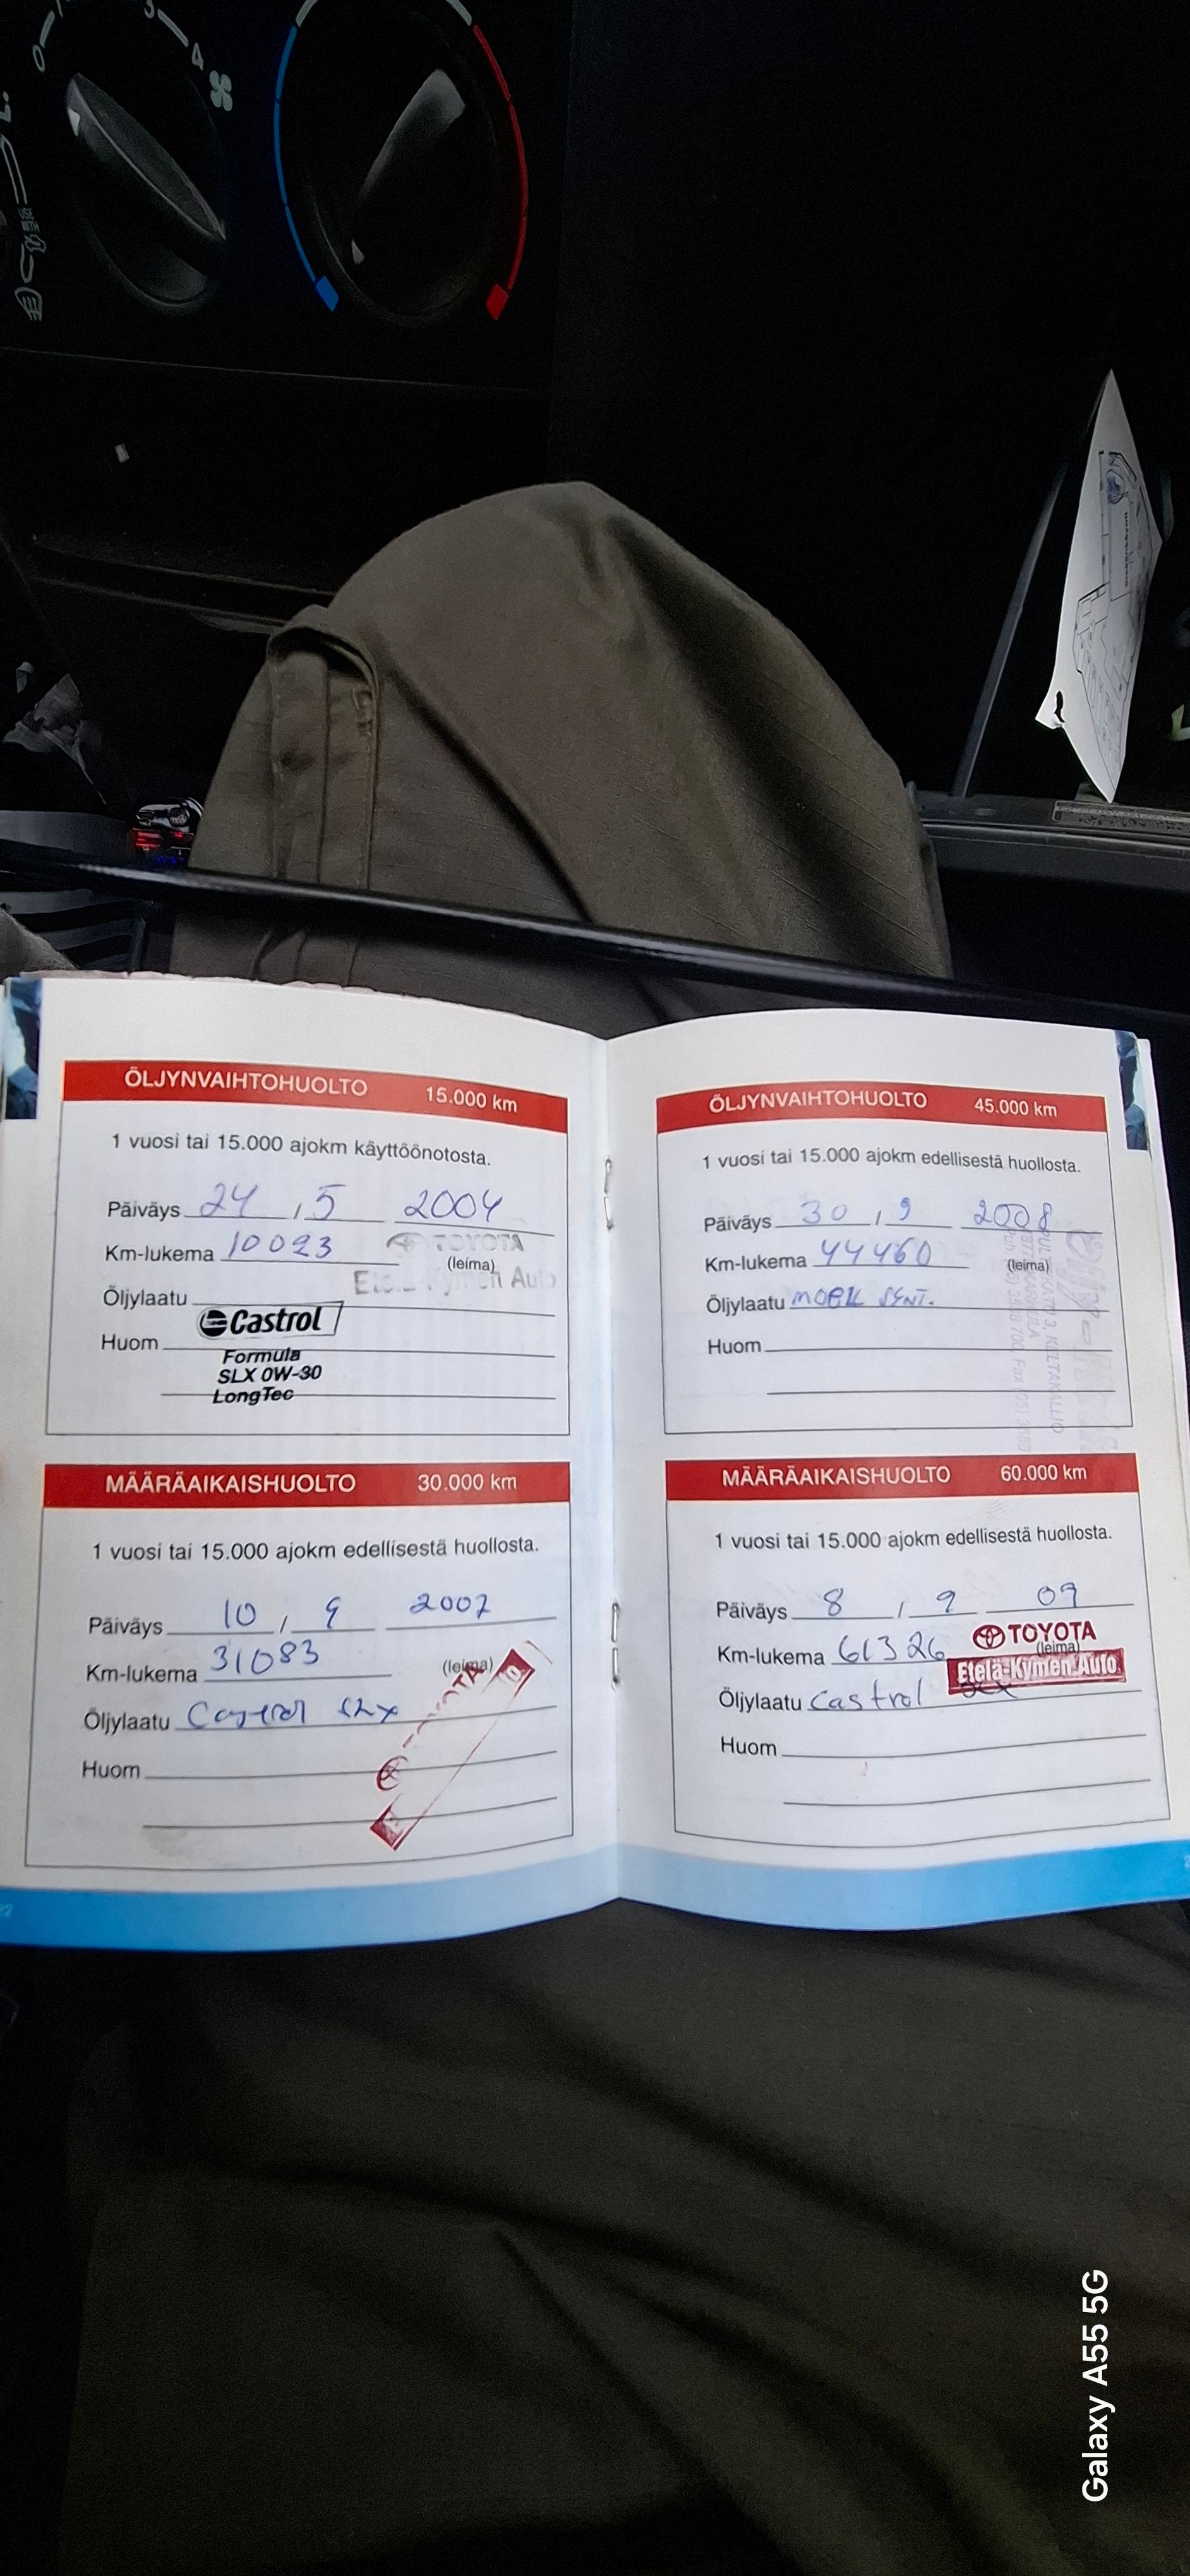 0
3
4
ÖLJYNVAIHTOHUOLTO 15.000 km
1 vuosi tai 15.000 ajokm käyttöönotosta.
Päiväys 24 / 5 2004
Km-lukema 10023
TOYOTA
(leima)
Etelä-Kymen Auto
Öljylaatu
Castrol
Huom
Formula
SLX 0W-30
LongTec
MÄÄRÄAIKAISHUOLTO 30.000 km
1 vuosi tai 15.000 ajokm edellisestä huollosta.
Päiväys 10 / 9 2007
Km-lukema 31083
(leima)
Öljylaatu Castrol SLX
Huom
22
ÖLJYNVAIHTOHUOLTO 45.000 km
1 vuosi tai 15.000 ajokm edellisestä huollosta.
Päiväys 30 / 9 2008
Km-lukema 44460
(leima)
Öljylaatu
Huom
MÄÄRÄAIKAISHUOLTO 60.000 km
1 vuosi tai 15.000 ajokm edellisestä huollosta.
Päiväys 8 / 9 09
Km-lukema 61326
TOYOTA
(leima)
Etelä-Kymen Auto
Öljylaatu Castrol SLX
Huom
Galaxy A55 5G